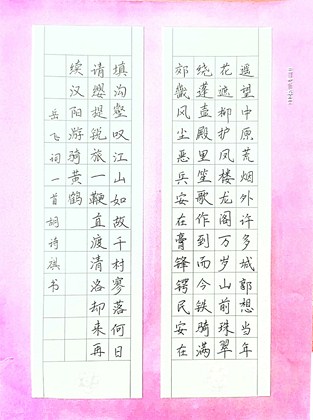 遥望中原荒烟外许多城郭想当年
花遮柳护凤楼龙阁万岁山前珠翠
绕蓬壶殿里笙歌作到而今铁骑满
郊畿风尘恶兵安在膏锋锷民安在
填沟壑叹江山如故千村寥落何日
请缨提锐旅一鞭直渡清洛却来再
续汉阳游骑黄鹤
岳飞词一首胡诗祺书